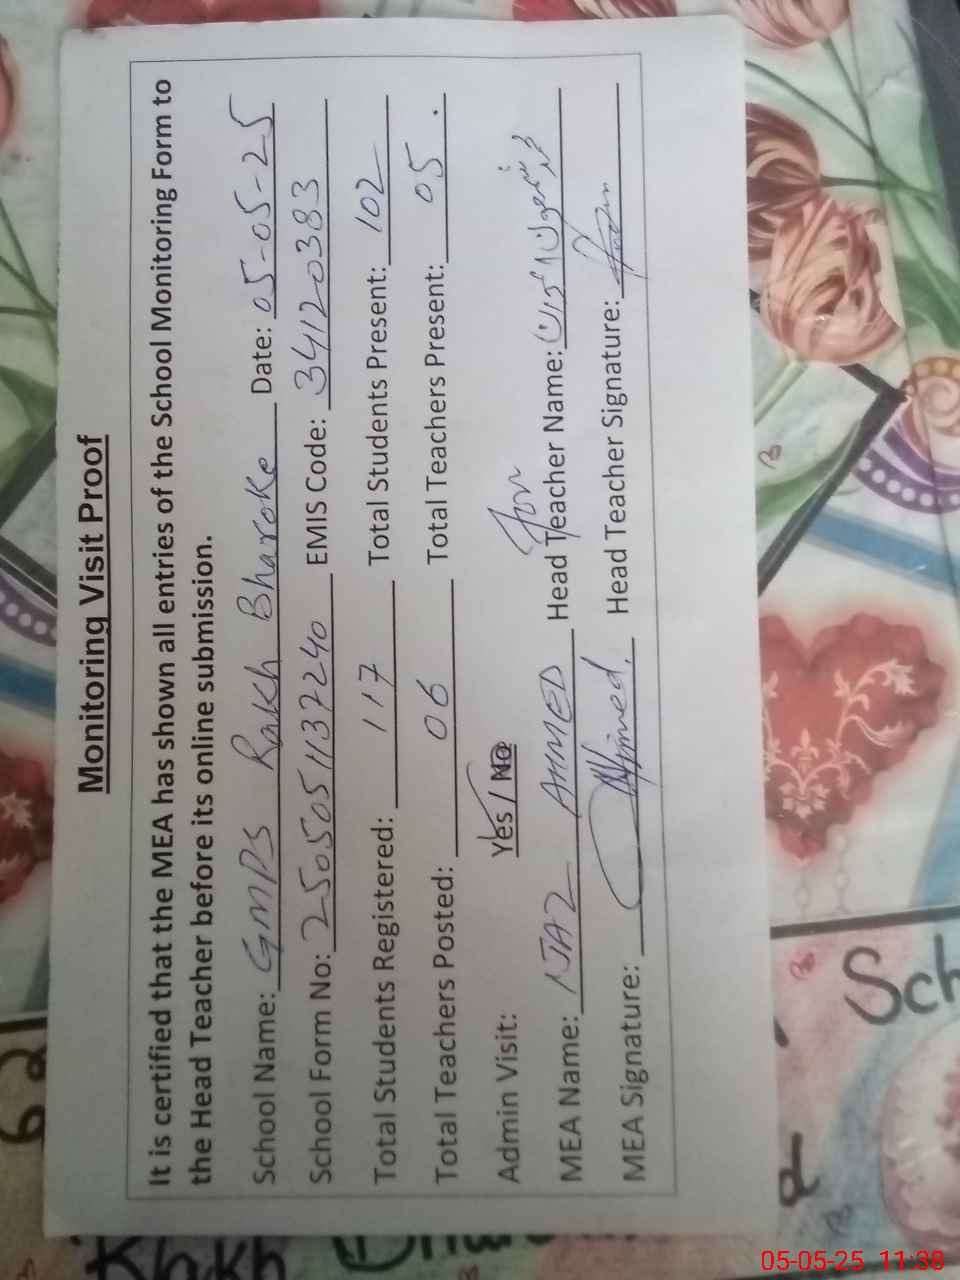 Monitoring Visit Proof
It is certified that the MEA has shown all entries of the School Monitoring Form to
the Head Teacher before its online submission.
School Name: GMPS Rakh Bharoke Date: 05-05-25
School Form No: 2505051137240 EMIS Code: 34120383
Total Students Registered: 117 Total Students Present: 102
Total Teachers Posted: 06 Total Teachers Present: 05.
Admin Visit: Yes / No
For
MEA Name: NJAZ AHMED Head Teacher Name:
MEA Signature: Head Teacher Signature:
Sch
05-05-25 11:38